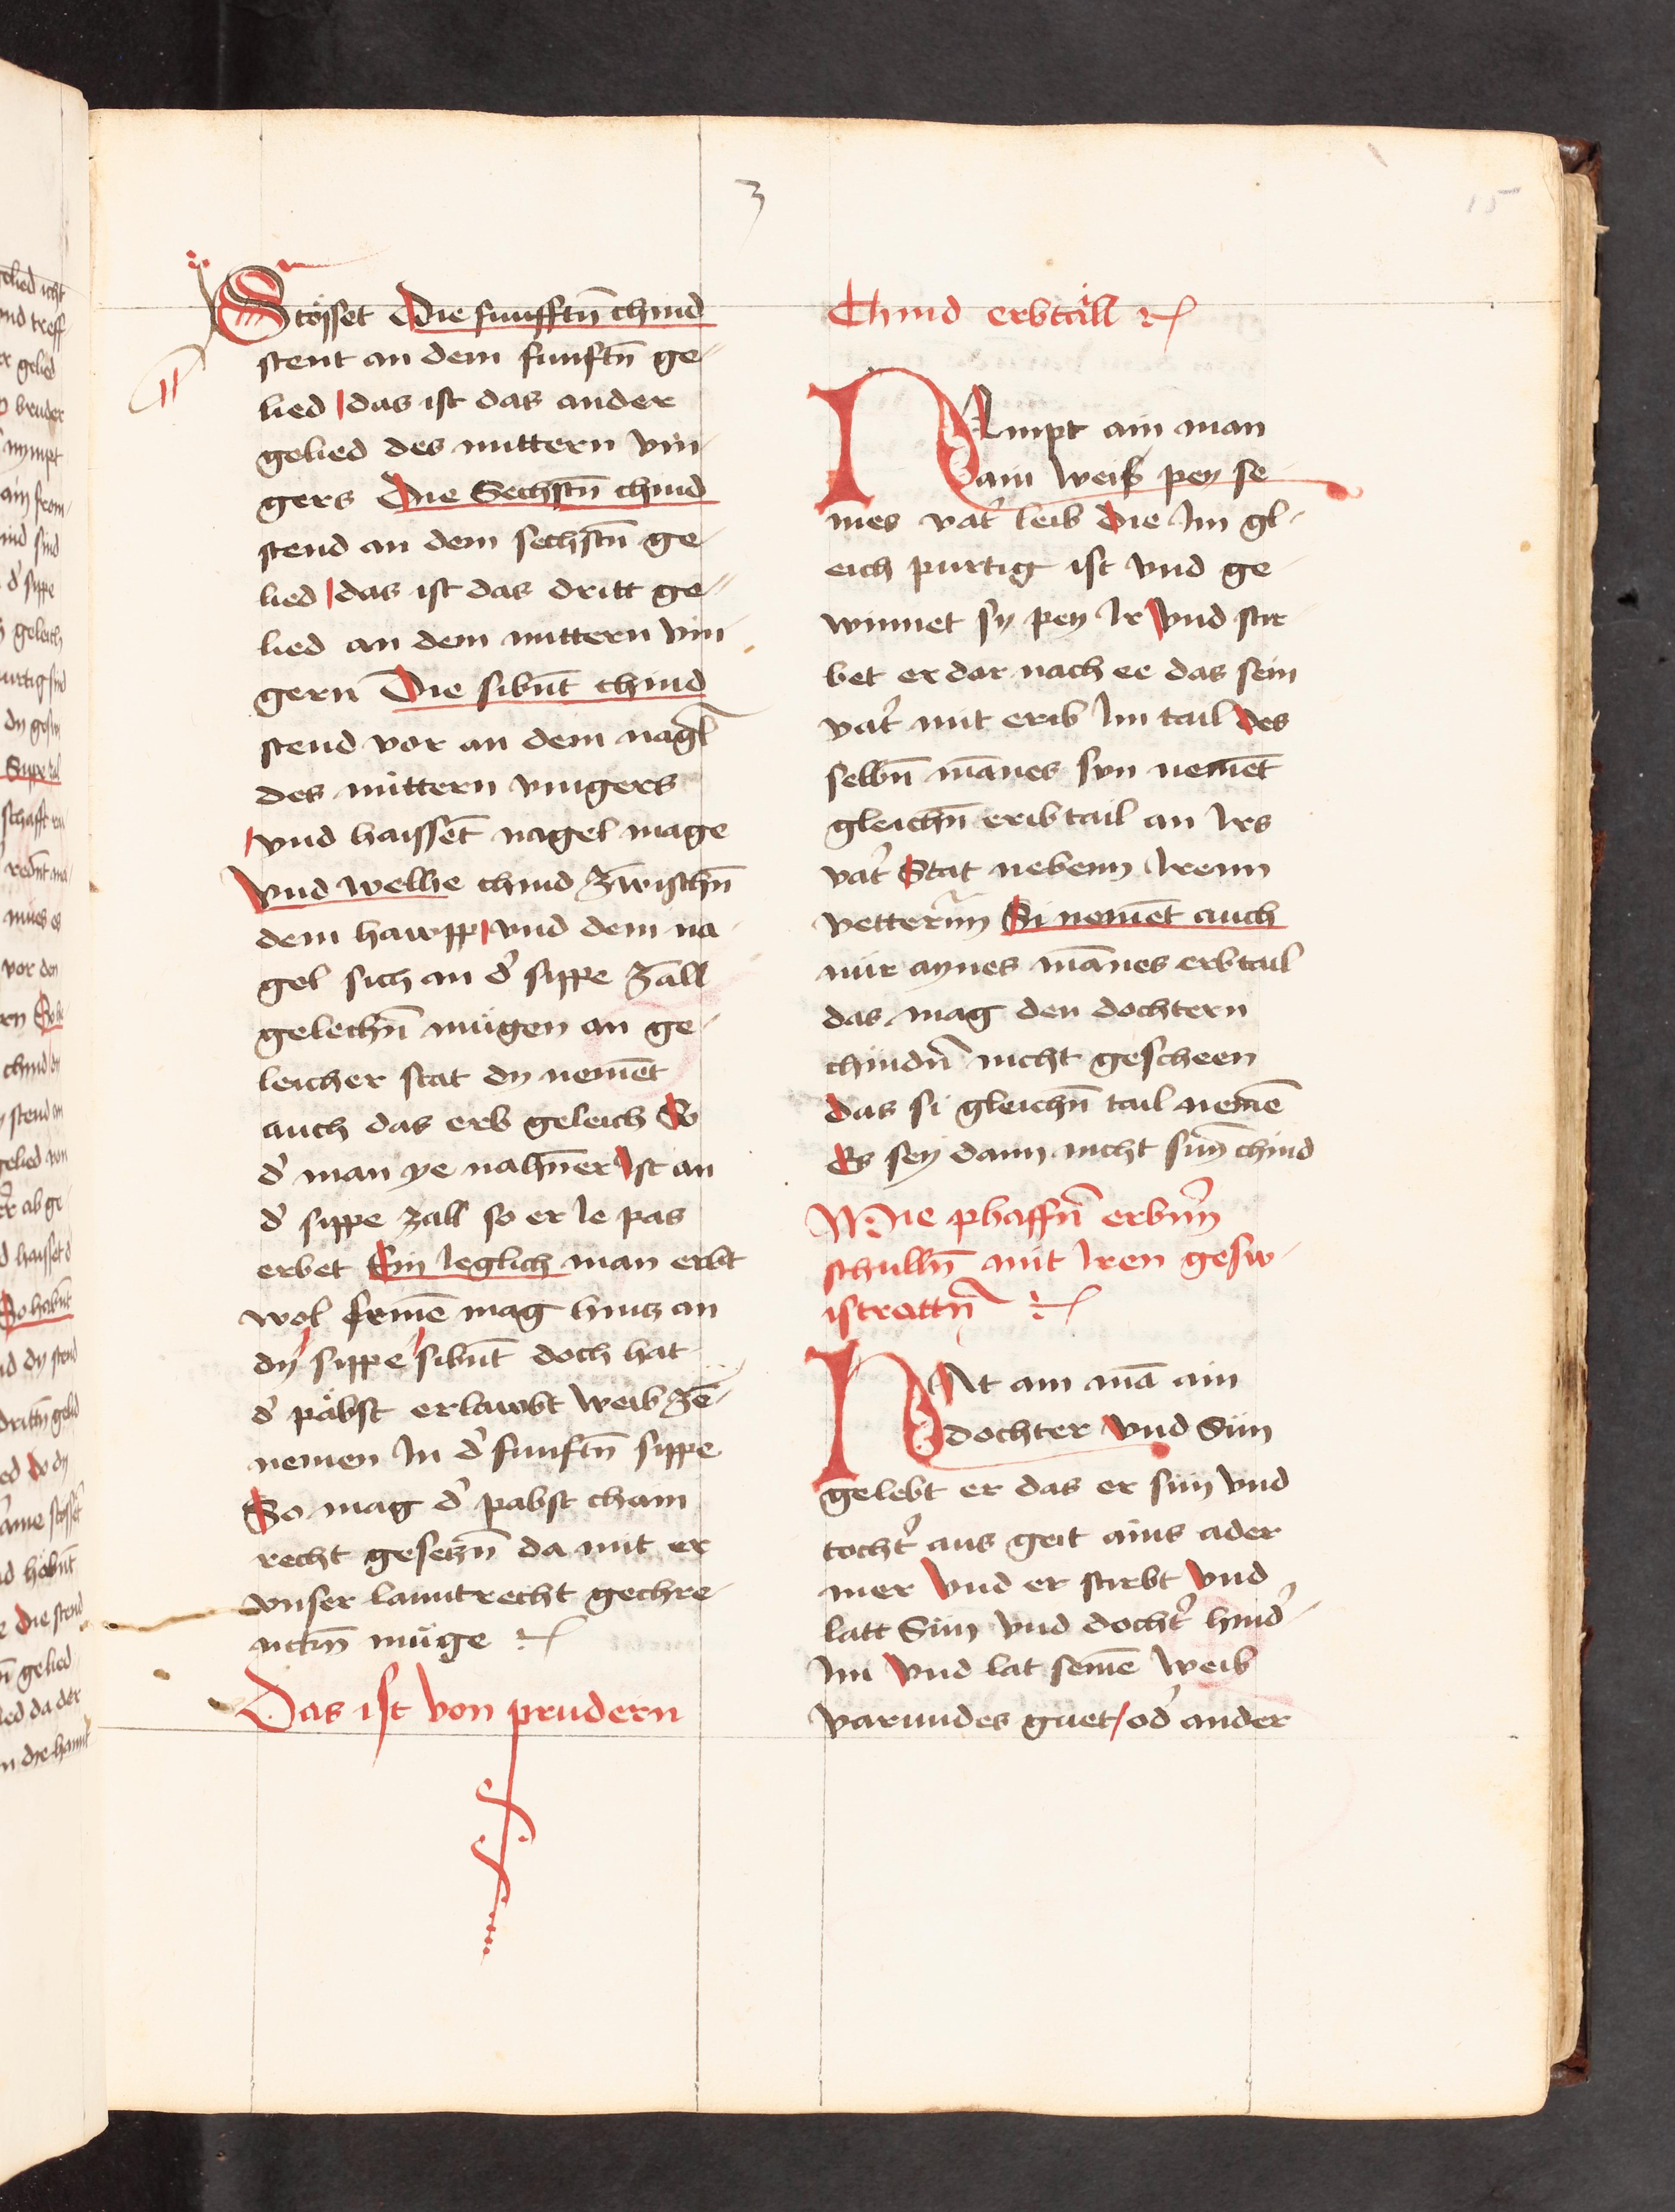 3
15
Stösset Die funfftn̄ chind
stent an dem funftn̄ ge-
lied das ist das ander
gelied des mittern vin
gers Die Sechstn̄ chind
stend an dem sechstn̄ ge-
lied das ist das dritt ge-
lied an dem mittern vin
gern Die sibnt̄ chind
stend vor an dem nagl
des mittern vingers
vnd haissen̄t nagel mage
Vnd welhe chind zwischn̄
dem hawpp vnd dem na
gel sich an d' sippe zall
gelechn̄ mügen an ge-
leicher stat dy nemen̄t
auch das erb geleich So
d' man ye nahn̄er Ist an
d' sippe zall so er Ie pas
erbet Ein Ieglich man erbt
wol seinē mag huntz an
dy sippe sibnt̄ doch hat
d' päbst erlawbt weib zē
nemen In d' funftn̄ sippe
So mag d' pabst chain
recht gesetzn̄ da mit er
vnser lanntrecht gechre-
nckn̄ müge
Das ist von prudern
Chind erbtäll
NImpt ain man
ain weib pey se
ines vat' leib die Im gl-
eich purtig ist vnd ge
winnet sy pey Ir vnd stir
bet er dar nach ee das sein
vat' mit erib Im tail des
selbn̄ mānes sun nemēt
gleichn̄ erib tail an Irs
vat' Stat nebenn Irenn
vettern̄ Si nemēt auch
nür aynes mānes erbtail
das mag den dochtern
chindn̄ nicht gescheen
das si gleichn̄ tail nemē
Es sey dann nicht sün chind
Wie phaffn̄ erbnn̄
schulln̄ mit Iren gesw-
istrattn̄
HAt ain mā ain
dochter vnd Sün
gelebt er das er sün vnd
tocht' aus geit ains ader
mer Vnd er stirbt Vnd
latt Sün vnd docht' hind'
Im Vnd lat seinē weib
varundes guet od' ander